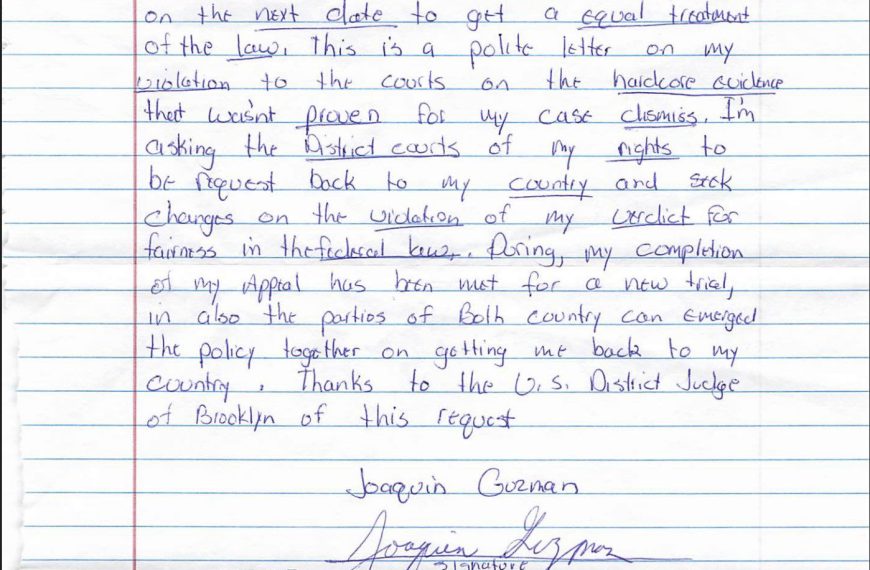 on the next date to get a equal treatment
of the law. This is a polite letter on my
violation to the courts on the hardcore evidence
that wasn't proven for my case dismiss. I'm
asking the District courts of my rights to
be request back to my country and seek
changes on the violation of my verdict for
fairness in the federal law. During, my completion
of my Appeal has been met for a new trial,
in also the parties of Both country can emerged
the policy together on getting me back to my
country. Thanks to the U.S. District Judge
of Brooklyn of this request
Joaquin Guzman
Joaquin Guzman
Signature